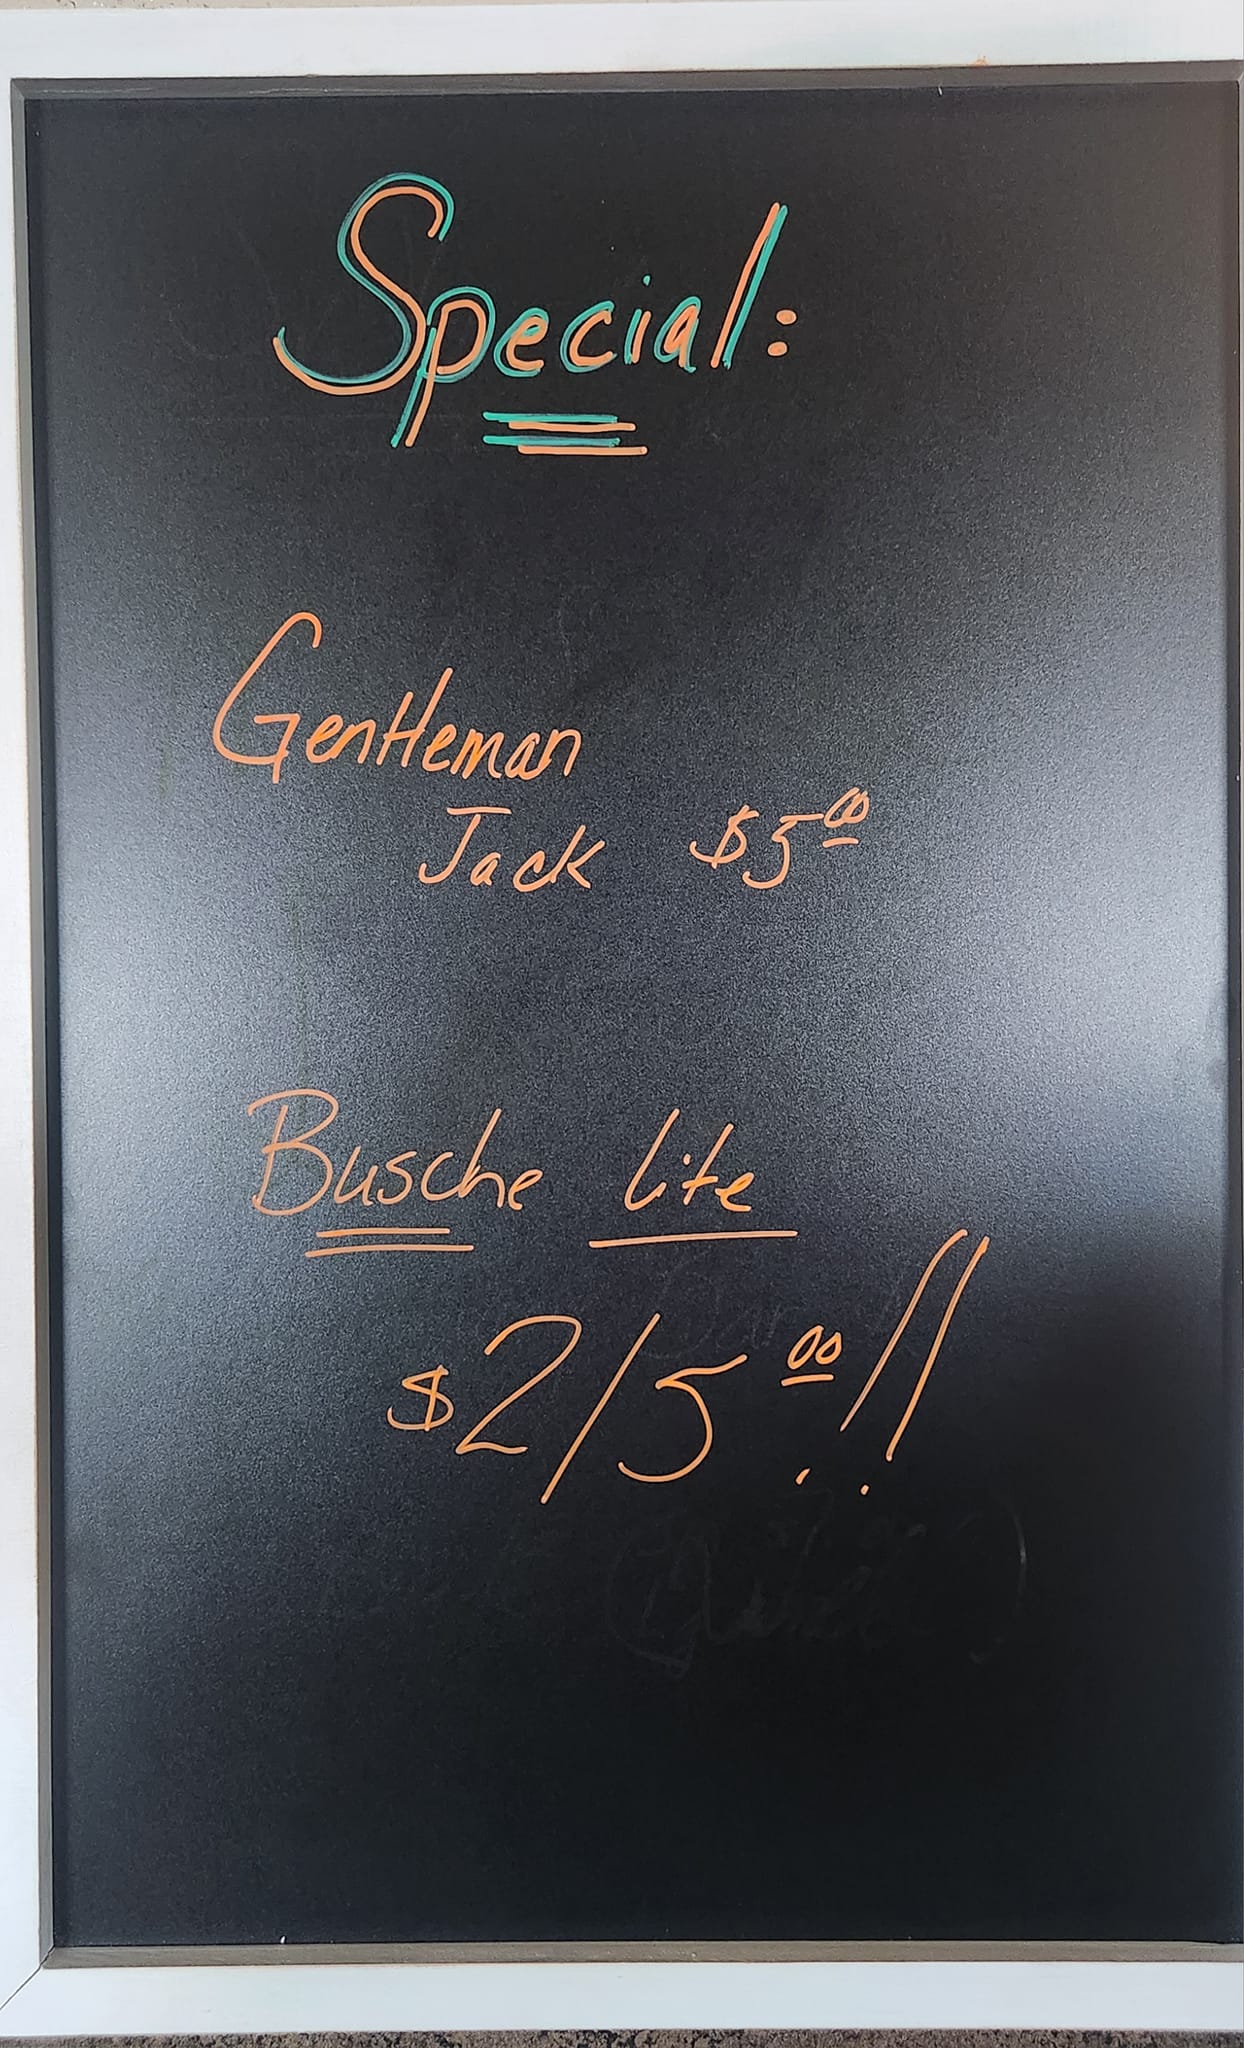 Special:
Gentleman
Jack $5.00
Busche Lite
$2/5.00!!